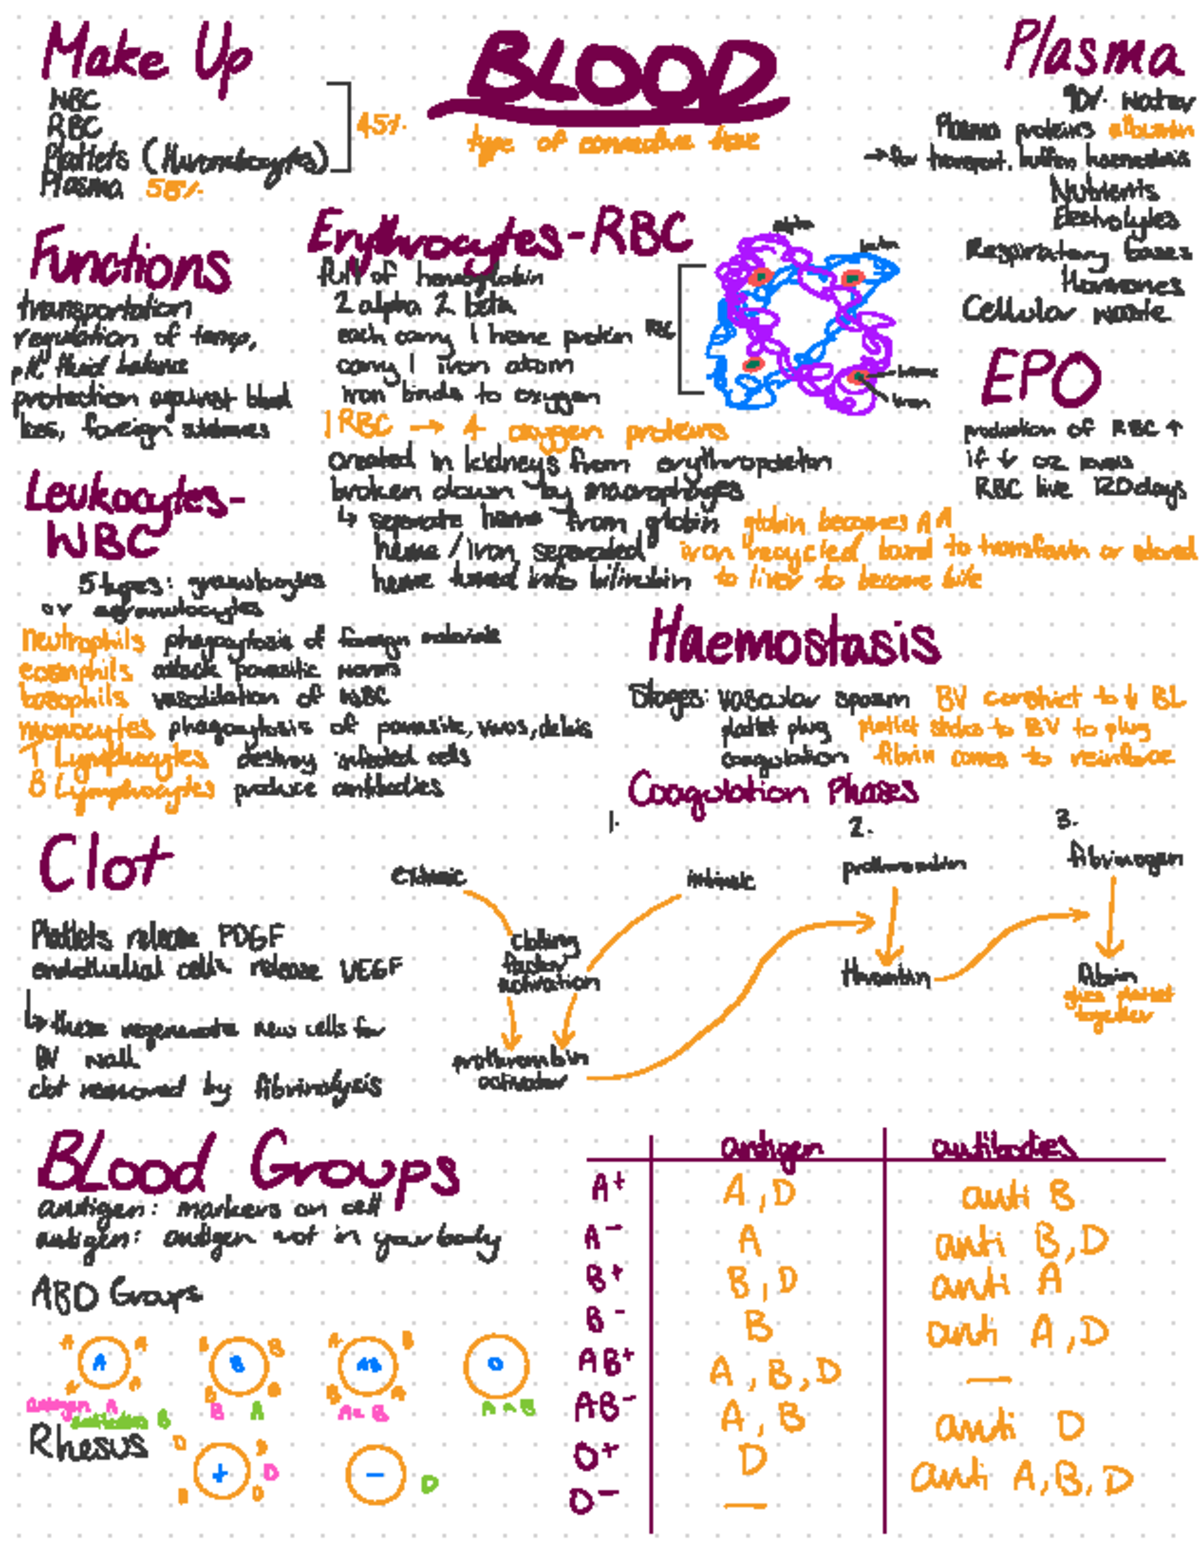 BLOOD
type of connective tissue
Make Up
WBC
RBC
Platlets (thrombocytes)
45%
Plasma 55%
Plasma
90% water
Plasma proteins albumin
→ for transport, buffers haemostasis
Nutrients
Electrolytes
Respiratory Gases
Hormones
Cellular waste
Functions
transportation
regulation of temp,
pH fluid balance
protection against blood
loss, foreign
Erythrocytes - RBC
full of hemoglobin
2 alpha 2 beta
each carry 1 heme protein
carry 1 iron atom
iron binds to oxygen
1 RBC → 4 oxygen proteins
created in kidneys from erythropoietin
broken down by macrophages
↳ seperate heme from globin globin becomes AA
heme / iron seperated iron recycled bound to transferrin or stored
heme turned into bilirubin to liver to become bile
RBC
alpha
beta
heme
iron
EPO
production of RBC ↑
if ↓ O2 levels
RBC live 120 days
Leukocytes -
WBC
5 types: granulocytes
or agranulocytes
neutrophils phagocytosis of foreign materials
eosinphils attack parasitic worms
basophils vasodilation of WBC
monocytes phagocytosis of parasite, virus, debris
T Lymphocytes destroy infected cells
B Lymphocytes produce antibodies
Haemostasis
Stages: vascular spasm BV constrict to ↓ BL
platlet plug platlet sticks to BV to plug
coagulation fibrin comes to reinforce
Coagulation Phases
1.
extrinsic
intrinsic
clotting
factor
activation
prothrombin
activator
2.
prothrombin
thrombin
3.
fibrinogen
fibrin
glues platlet
together
Clot
Platlets release PDGF
endothelial cells release VEGF
↳ these regenerate new cells for
BV wall
clot removed by fibrinolysis
Blood Groups
antigen: markers on cell
antigen: antigen not in your body
ABO Groups
A A
A
A A
antigen A
antibodies B
B B
B
B B
B A
A B
AB
B A
A & B
O
A & B
Rhesus
D D
+
D
D D
-
D
antigen antibodies
A+ A, D anti B
A- A anti B, D
B+ B, D anti A
B- B anti A, D
AB+ A, B, D —
AB- A, B anti D
O+ D anti A, B, D
O- —